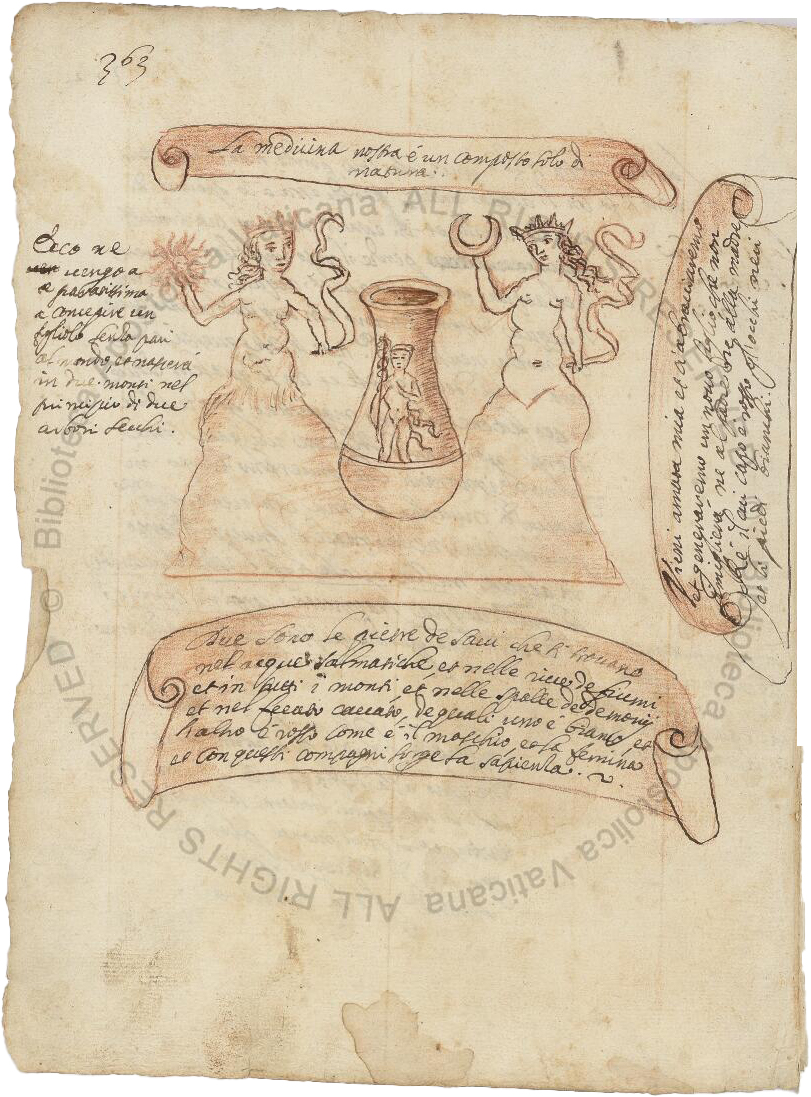 363
La medicina nostra é un composto solo di
natura.
Ecco ne
vengo a
e paratissima
a concepire un
figliolo senza pari
al mondo, et nascerá
in due monti nel
principio di due
arbori secchi.
Vieni amata mia et ci abbracciaremo
et generaremo un novo figlio che non
simiglierá ne al padre ne alla madre
il cui capo é rosso gl'occhi neri
et li piedi bianchi.
Due sono le pietre de savii che si trovano
nel acque salmatiche, et nelle rive de fiumi
et in tutti i monti et nelle spalle de demonij
et nel feccato caccato, de quali uno é biano, et
l'altro é rosso come é il maschio, et la femina
et con questi compagni si pe la sapienta.
© Biblioteca Apostolica Vaticana ALL RIGHTS RESERVED
© Biblioteca Apostolica Vaticana ALL RIGHTS RESERVED